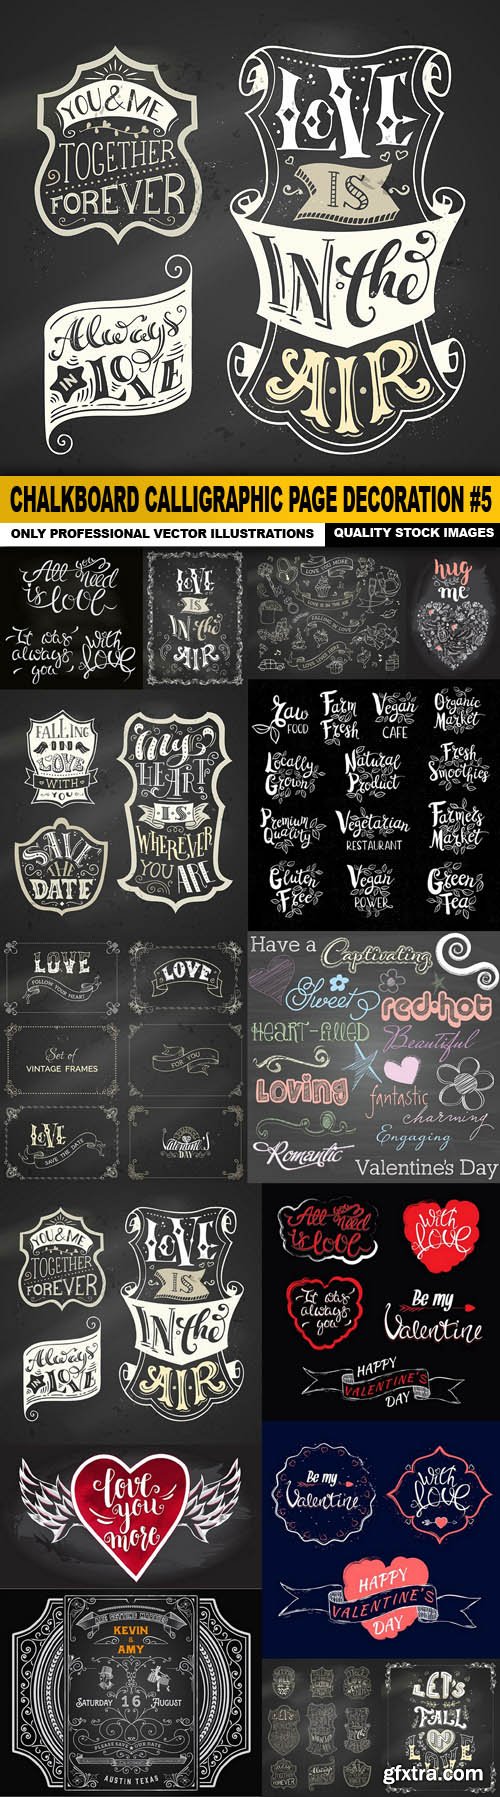 YOU & ME
TOGETHER
FOREVER
LOVE
IS
IN the
AIR
Always
IN LOVE
CHALKBOARD CALLIGRAPHIC PAGE DECORATION #5
ONLY PROFESSIONAL VECTOR ILLUSTRATIONS
QUALITY STOCK IMAGES
All you
need
is love
It was
always
you
with
love
LOVE
IS
IN the
AIR
LOVE YOU MORE
LOVE IS IN THE AIR
FALLING IN LOVE
hug
me
FALLING
IN
LOVE
WITH
YOU
SAVE
THE
DATE
My
HEART
IS
WHEREVER
YOU ARE
Raw
FOOD
Farm
Fresh
Vegan
CAFE
Organic
Market
Locally
Grown
Natural
Product
Fresh
Smoothies
Premium
Quality
Vegetarian
RESTAURANT
Farmers
Market
Gluten
Free
Vegan
POWER
Green
Tea
LOVE
FOLLOW YOUR HEART
LOVE
Set of
VINTAGE FRAMES
FOR YOU
LOVE
SAVE THE DATE
Valentine's
DAY
Have a
Captivating
Sweet
red-hot
HEART-filled
Beautiful
Loving
fantastic
charming
Engaging
Romantic
Valentine's Day
YOU & ME
TOGETHER
FOREVER
LOVE
IS
IN the
AIR
Always
IN LOVE
All you
need
is love
with
love
It was
always
you
Be my
Valentine
HAPPY
VALENTINE'S
DAY
love
you
more
Be my
Valentine
with
love
HAPPY
VALENTINE'S
DAY
ARE GETTING MARRIED
KEVIN
&
AMY
SATURDAY 16 AUGUST
PLEASE SAVE OUR DATE
AUSTIN TEXAS
LET'S
FALL
IN
LOVE
gfxtra.com